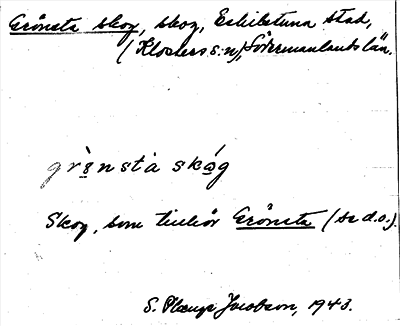 Grönsta skog, skog, Eskilstuna stad,
(Klosters s:n), Södermanlands län.
grö̀nsta skóg
Skog, som tillhör Grönsta (se d.o.).
S. Jacobson, 1943.